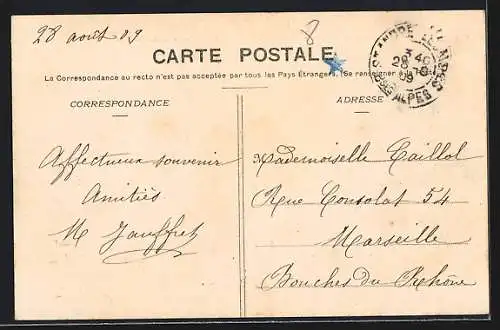 28 août 09
8
CARTE POSTALE
La Correspondance au recto n'est pas acceptée par tous les Pays Étrangers. (Se renseigner
CORRESPONDANCE
ADRESSE
Affectueux souvenir
Amitiés
M Jauffret
Mademoiselle Caillol
Rue Consolat 54
Marseille
Bouches du Rhône
ST ANDRÉ
3
28
09
ALPES